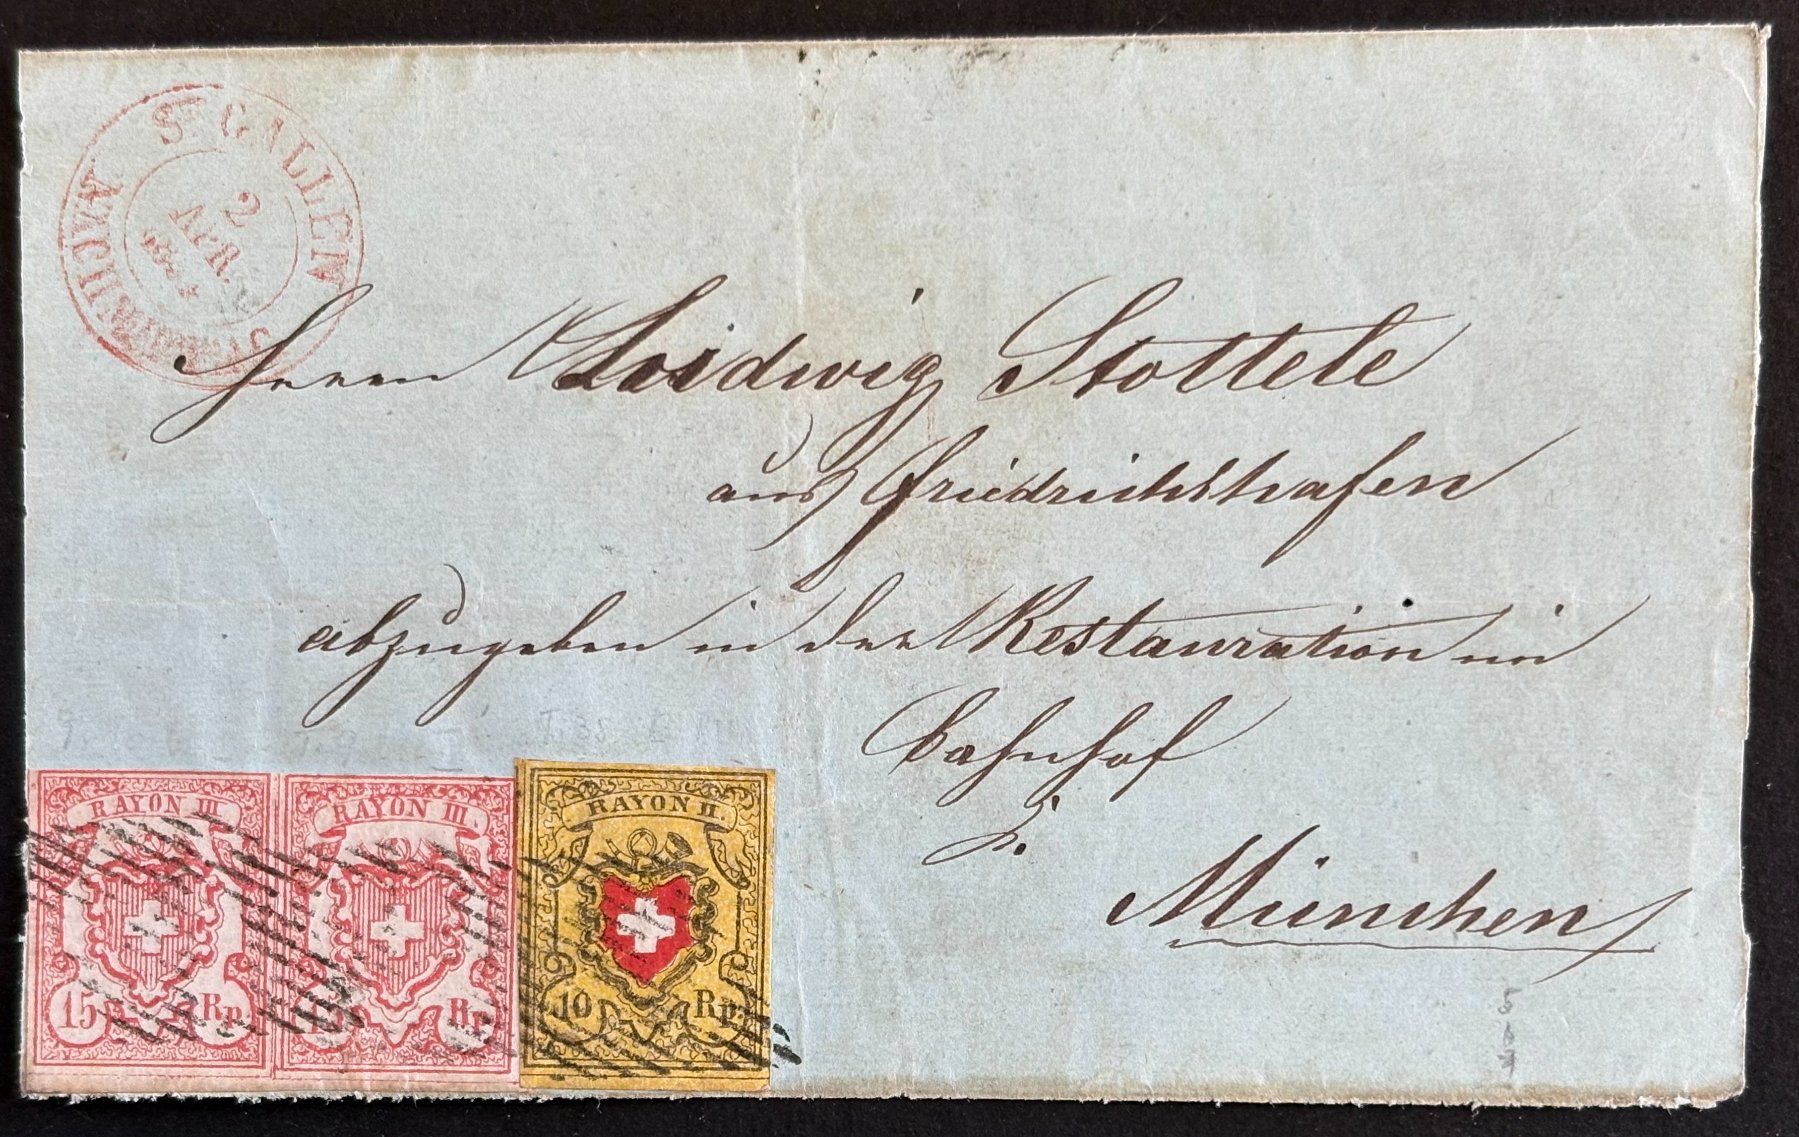 St GALLEN
2
APR.
NACHMITTAG
Herrn Loidwig Stottele
aus Friedrichshafen
abzugeben in der Restauration im
Bahnhof
z.
München
RAYON III.
15 Rp.
RAYON III.
15 Rp.
RAYON II.
10 Rp.